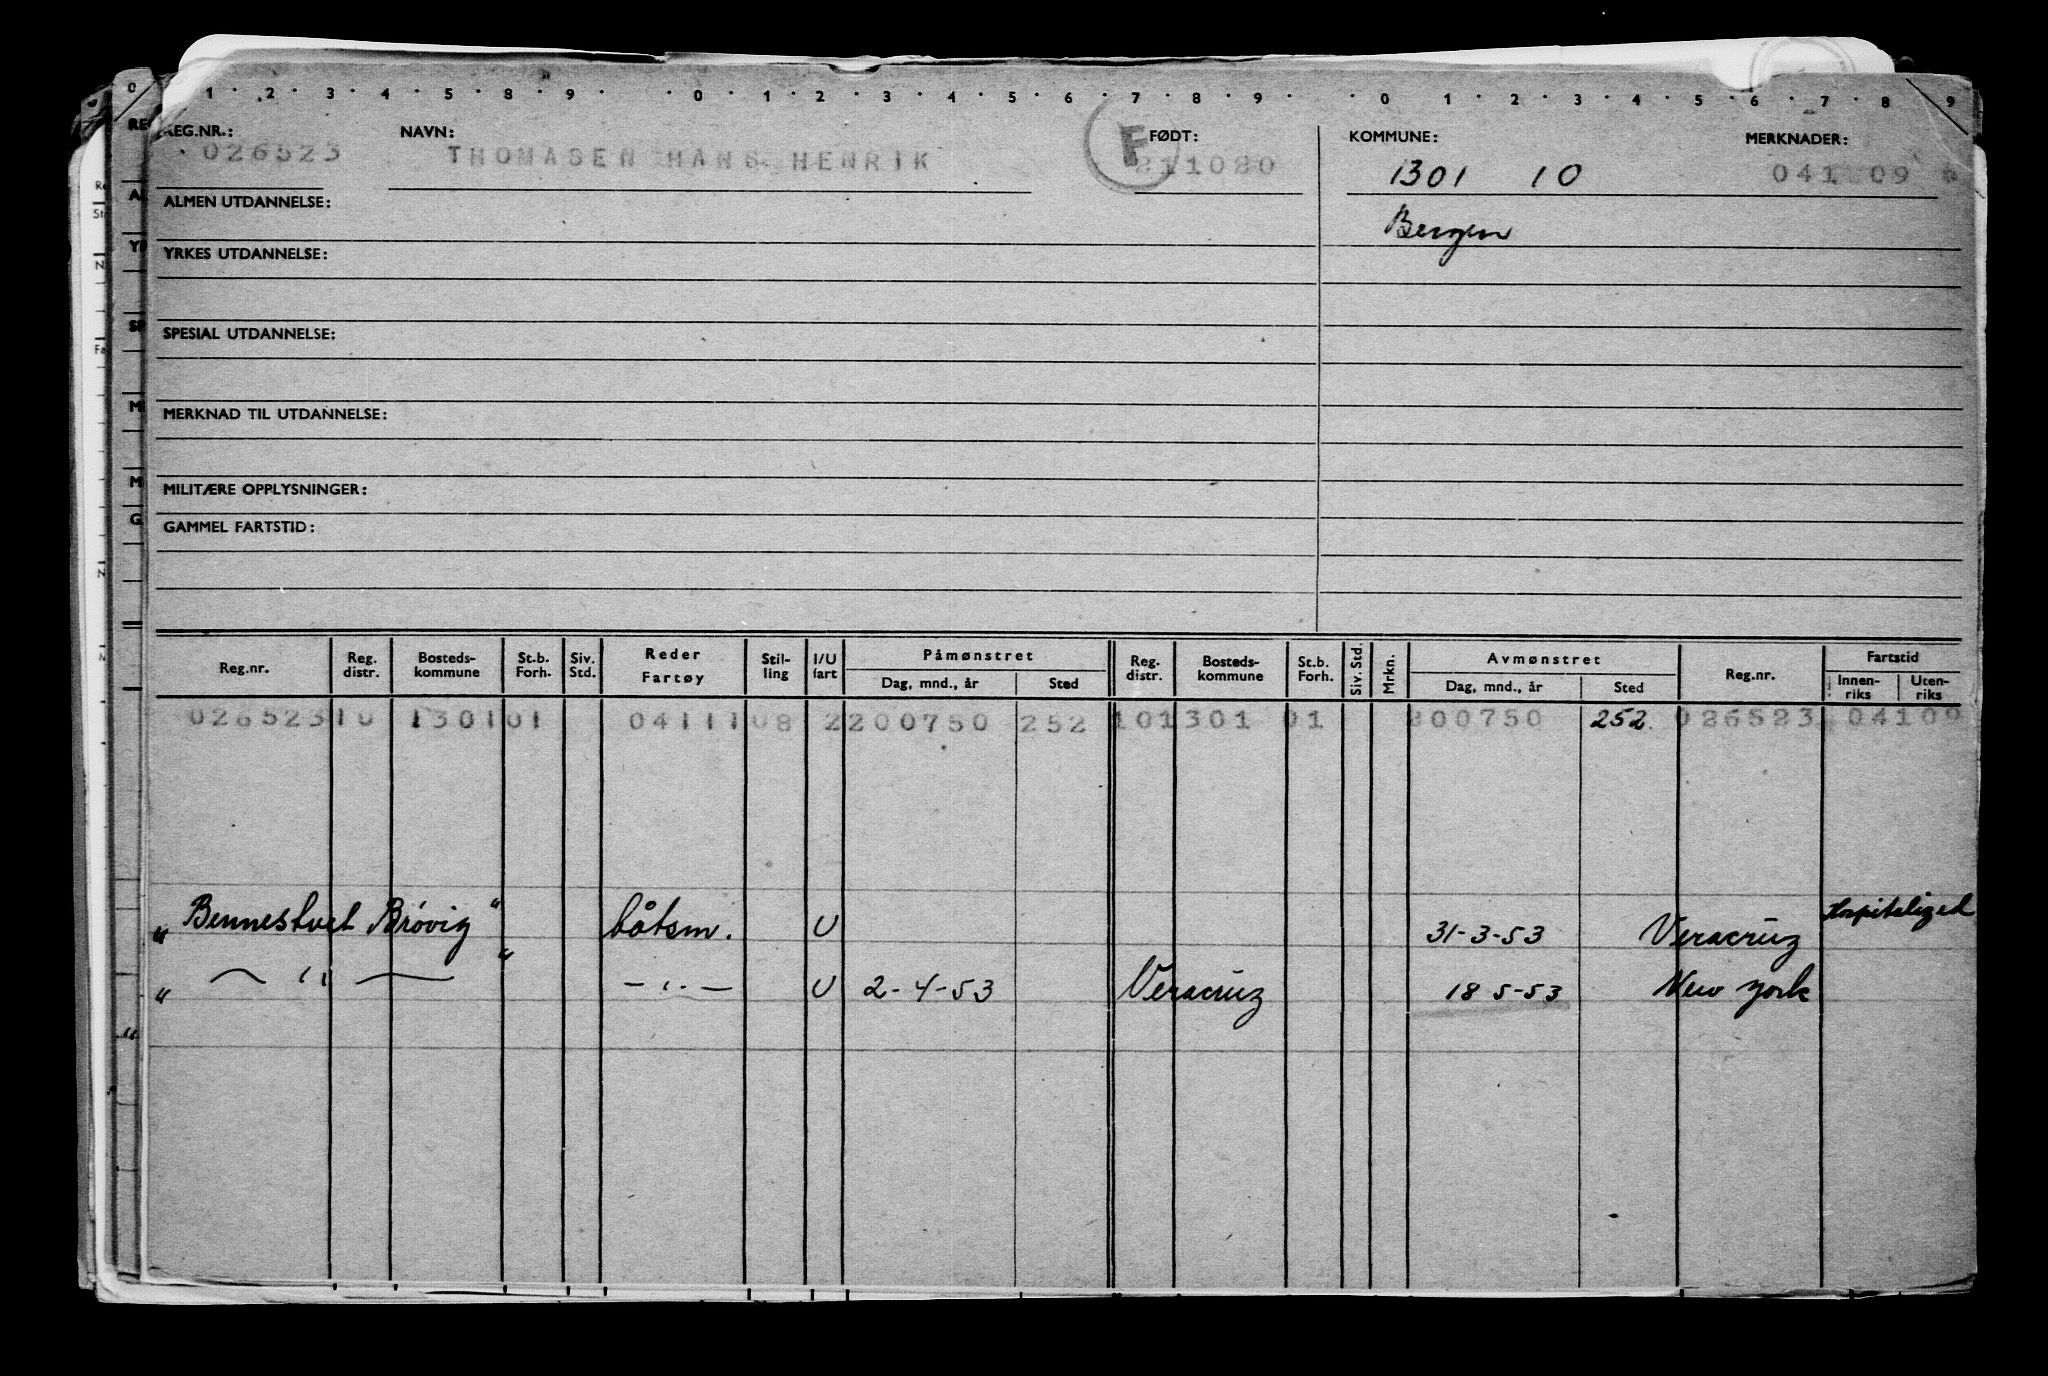 0 · 1 · 2 · 3 · 4 · 5 · 8 · 9 · · 0 · 1 · 2 · 3 · 4 · 5 · 6 · 7 · 8 · 9 · · 0 · 1 · 2 · 3 · 4 · 5 · 6 · 7 · 8 · 9
REG.NR.: NAVN: F FØDT: KOMMUNE: MERKNADER:
026523 THOMASEN HANS HENRIK 211020 1301 10 041 09 6
ALMEN UTDANNELSE: Bergen
YRKES UTDANNELSE:
SPESIAL UTDANNELSE:
MERKNAD TIL UTDANNELSE:
MILITÆRE OPPLYSNINGER:
GAMMEL FARTSTID:
Reg.nr. Reg. distr. Bosteds- kommune St.b. Forh. Siv. Std. Reder Fartøy Stil- ling I/U fart Påmønstret Dag, mnd., år Sted Reg. distr. Bosteds- kommune St.b. Forh. Siv. Std. Mrkn. Avmønstret Dag, mnd., år Sted Reg.nr. Fartstid Innen- riks Uten- riks
026523 10 1301 01 04111 08 2 200750 252 10 1301 01 200750 252 026523 04109
„ Bennestvet Brøvig " båtsm. U 31-3-53 Veracruz Hospitalized
„ — " — „ — " — U 2-4-53 Veracruz 18 5-53 New York